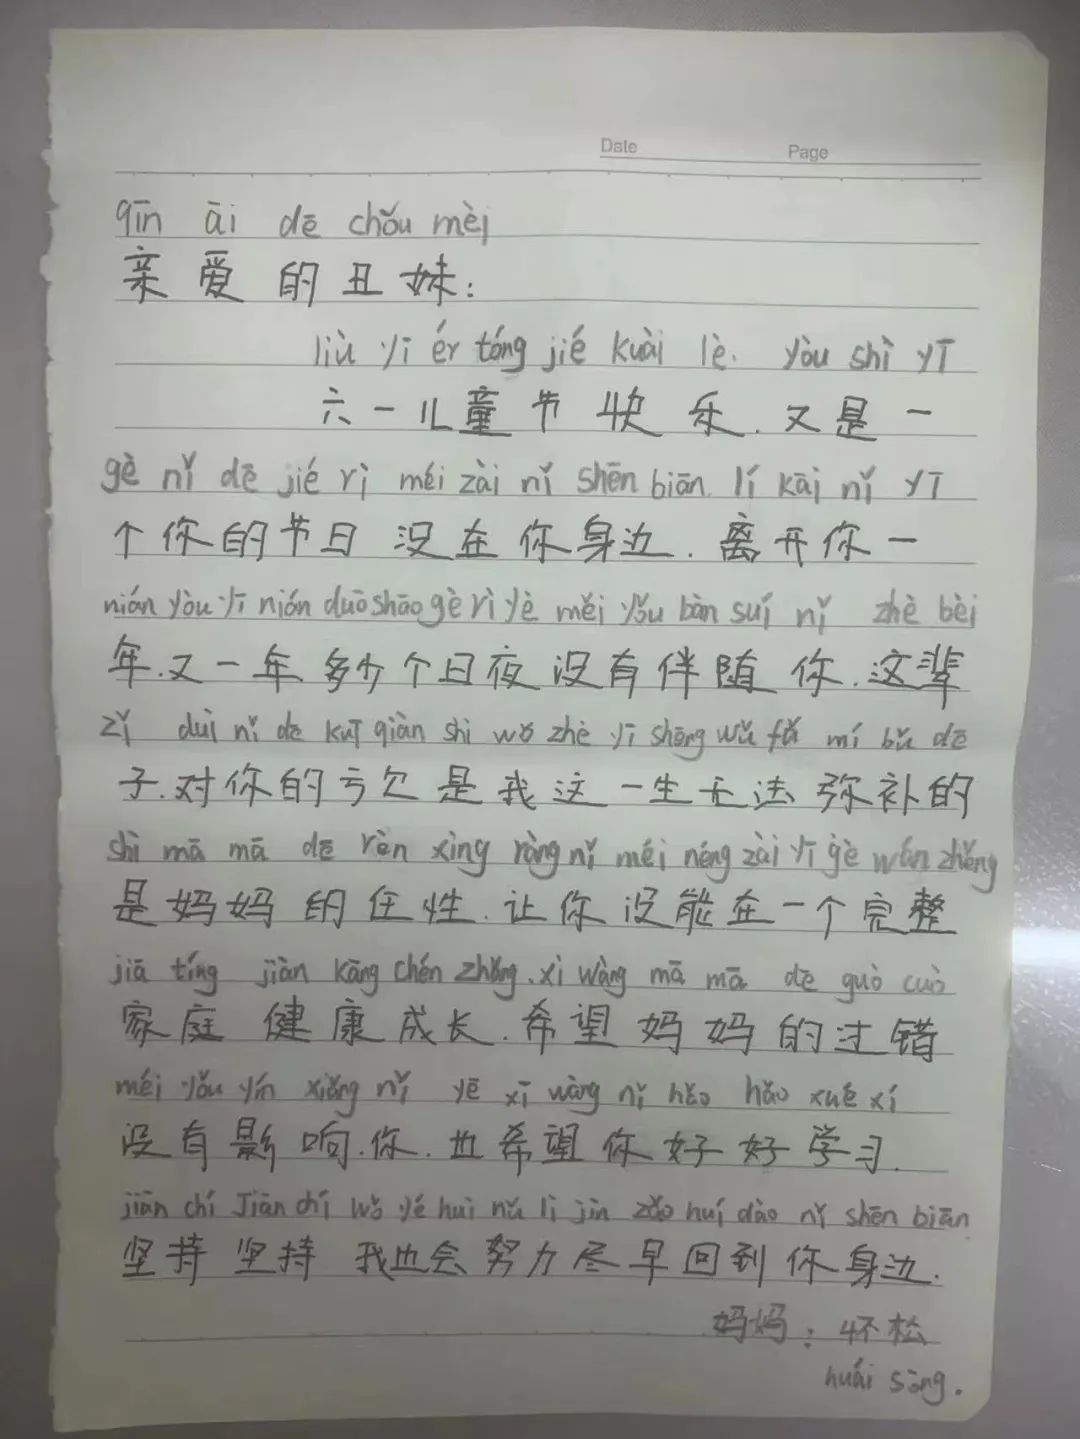 Date Page
qīn āi dē chǒu mèi
亲爱的丑妹：
liù yī ér tóng jié kuài lè. yòu shì yī
六一儿童节快乐.又是一
gè nǐ dē jié rì méi zài nǐ shēn biān. lí kāi nǐ yī
个你的节日 没在你身边.离开你一
nián yòu yī nián duō shāo gè rì yè měi yǒu bàn suí nǐ zhè bèi
年.又一年多少个日夜没有伴随你.这辈
zǐ duì nǐ dē kuī qiàn shì wǒ zhè yī shēng wǔ fǎ mí bǔ dē
子.对你的亏欠是我这一生无法弥补的
shì mā mā dē rèn xìng ràng nǐ méi néng zài yī gè wán zhěng
是妈妈的任性.让你没能在一个完整
jiā tíng jiàn kāng chén zhǎng. xì wàng mā mā dē guò cuò
家庭健康成长.希望妈妈的过错
méi yǒu yín xiǎng nǐ yě xī wàng nǐ hǎo hǎo xué xí
没有影响.你.也希望你好好学习.
jiān chí Jiān chí wǒ yé huì nǔ lì jìn zǎo huí dào nǐ shēn biān
坚持 坚持 我也会努力尽早回到你身边.
妈妈：怀松
huái sōng.